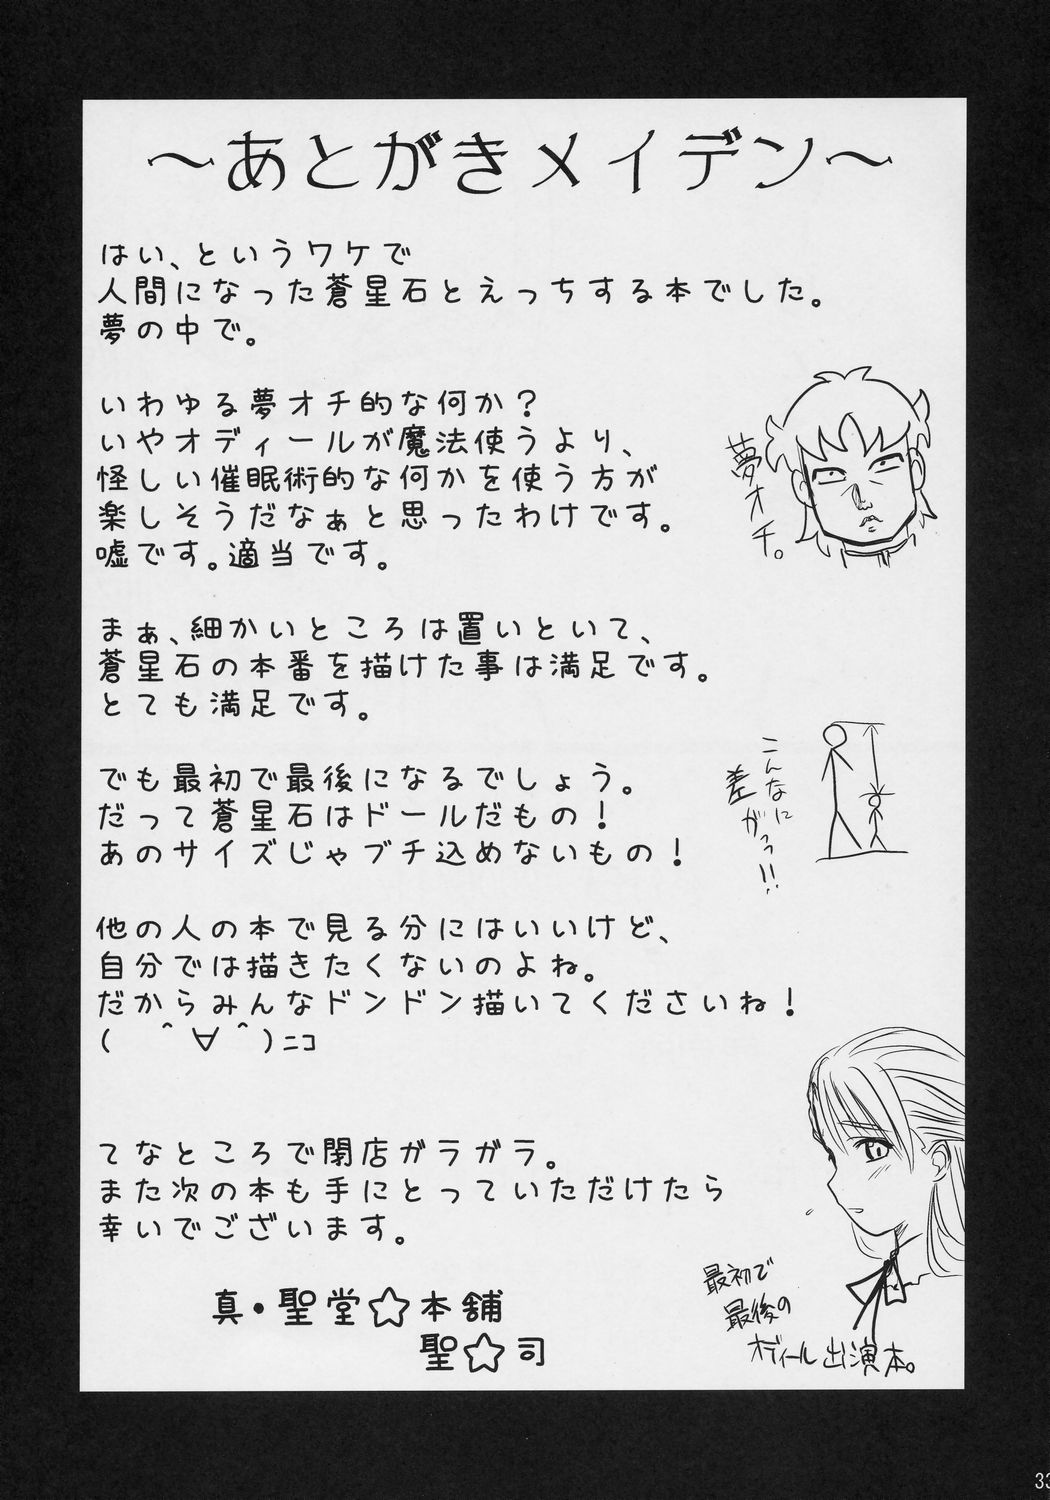 ～あとがきメイデン～
はい、というワケで
人間になった蒼星石とえっちする本でした。
夢の中で。
いわゆる夢オチ的な何か？
いやオディールが魔法使うより、
怪しい催眠術的な何かを使う方が
楽しそうだなぁと思ったわけです。
嘘です。適当です。
夢オチ。
まぁ、細かいところは置いといて、
蒼星石の本番を描けた事は満足です。
とても満足です。
でも最初で最後になるでしょう。
だって蒼星石はドールだもの！
あのサイズじゃブチ込めないもの！
こんなに
差がっっ!!
他の人の本で見る分にはいいけど、
自分では描きたくないのよね。
だからみんなドンドン描いてくださいね！
(　＾∀＾)ﾆｺ
てなところで閉店ガラガラ。
また次の本も手にとっていただけたら
幸いでございます。
真・聖堂☆本舗
聖☆司
最初で
最後の
オディール出演本。
33